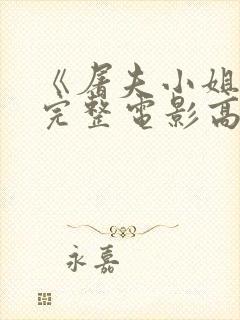 《屠夫小姐
完整电影高
永嘉